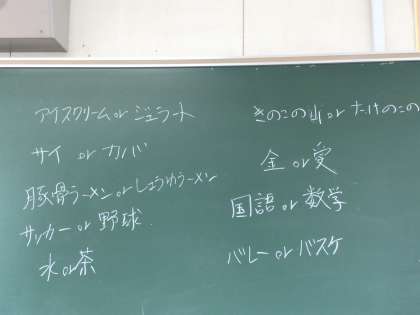 アイスクリーム or ジェラート
サイ or カバ
豚骨ラーメン or しょうゆラーメン
サッカー or 野球
水 or 茶
きのこの山 or たけのこの
金 or 愛
国語 or 数学
バレー or バスケ